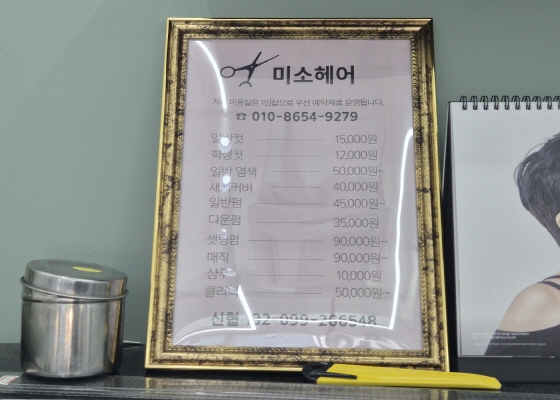 미소헤어
저희 미용실은 1인샵으로 우선 예약제로 운영됩니다.
☎ 010-8654-9279
일반컷 15,000원
학생컷 12,000원
일반 염색 50,000원~
새치커버 40,000원
일반펌 45,000원~
다운펌 35,000원
셋팅펌 90,000원~
매직 90,000원~
샴푸 10,000원
클리닉 50,000원~
신협 132-099-266548